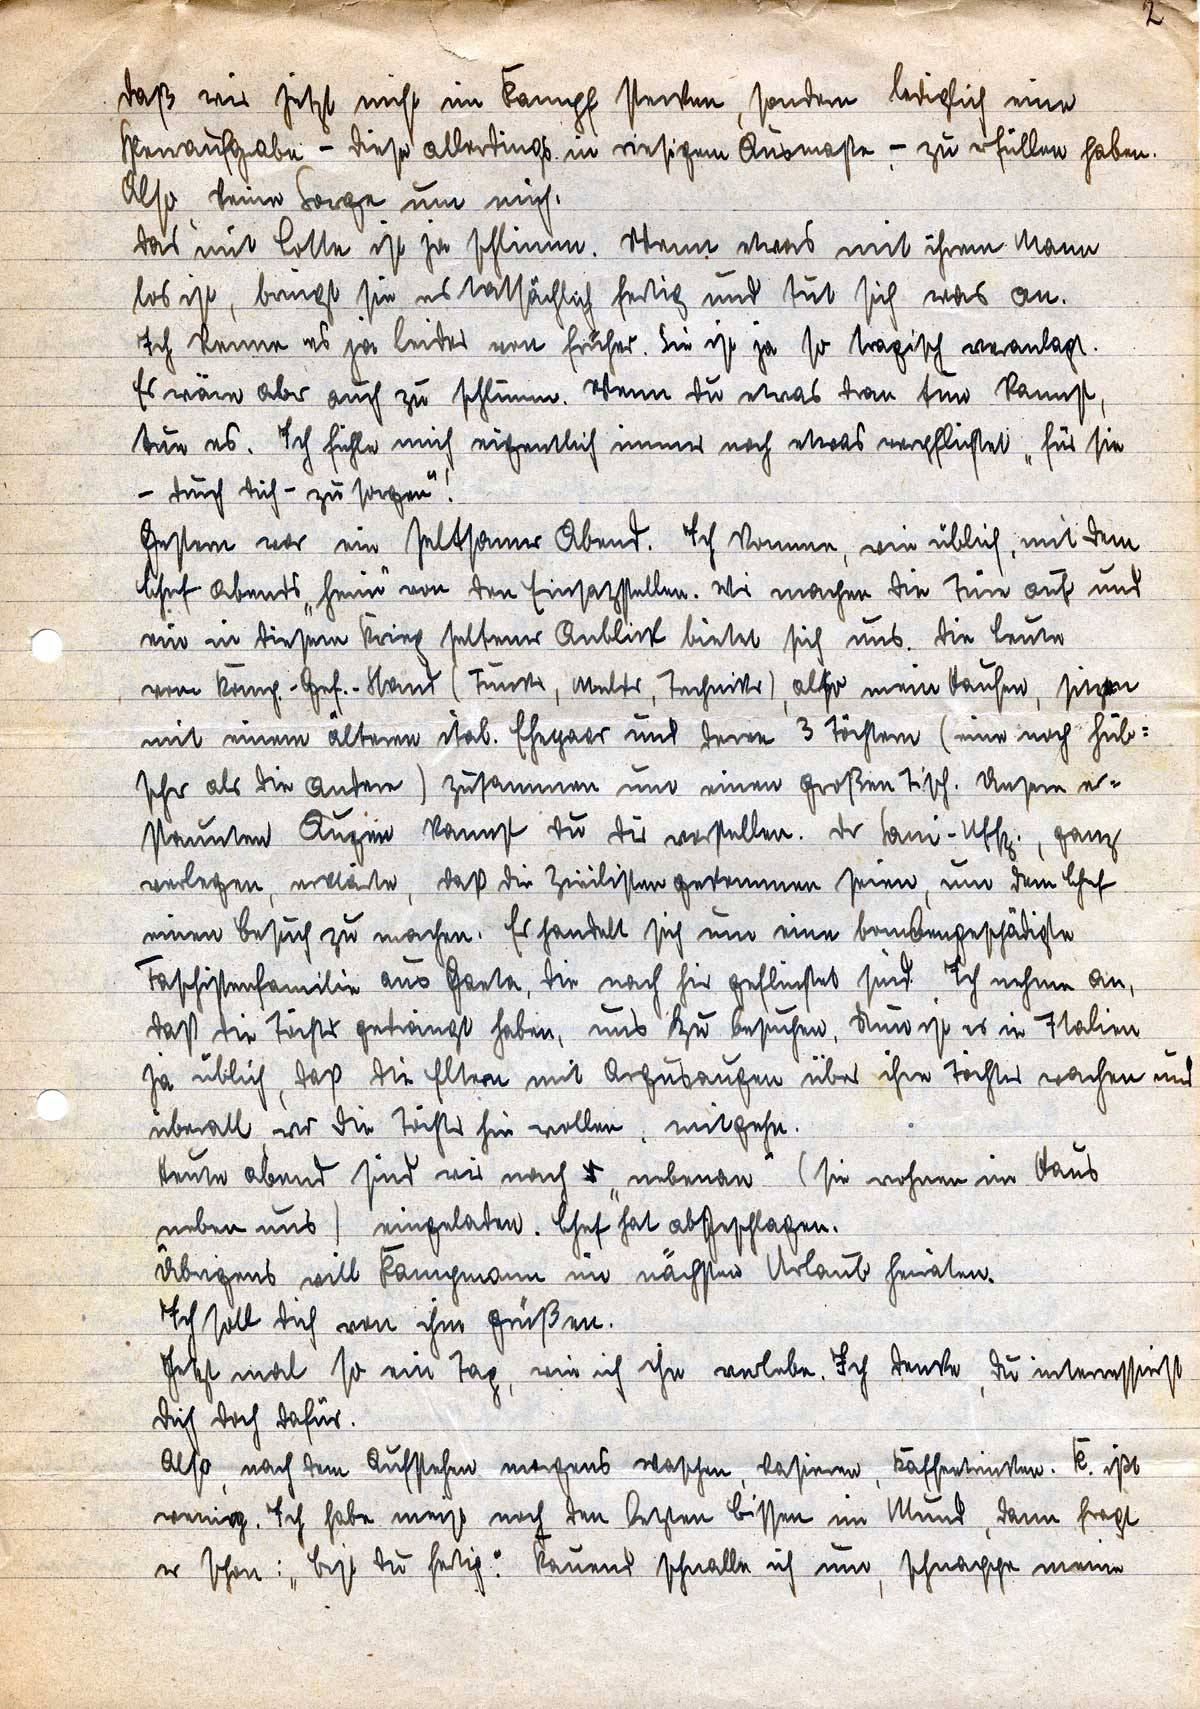 2
daß wir jetzt nicht im Kampf stecken, sondern lediglich eine
Sperraufgabe – diese allerdings in riesigem Ausmaße – zu erfüllen haben.
Also, keine Sorge um mich.
Das mit Lotte ist ja schlimm. Wenn etwas mit ihrem Mann
los ist, bringt sie es tatsächlich fertig und tut sich was an.
Ich kenne es ja leider von früher. Sie ist ja so tragisch veranlagt.
Es wäre aber auch zu schlimm. Wenn du etwas dran tun kannst,
tue es. Ich fühle mich eigentlich immer noch etwas verpflichtet „für sie
– durch dich – zu sorgen"!
Gestern war ein seltsamer Abend. Ich komme, wie üblich, mit dem
Chef abends „heim" von den Einsatzstellen. Wir machen die Türe auf und
ein in diesem Krieg seltener Anblick bietet sich uns. Die Leute
vom Komp.-Gef.-Stand (Funker, Melder, Techniker), also mein Haufen, sitzen
mit einem älteren ital. Ehepaar und deren 3 Töchtern (eine noch hüb=
scher als die Andere) zusammen um einen großen Tisch. Unsere er=
staunten Augen kannst du dir vorstellen. Der Sani-Uffz., ganz
verlegen, erklärte, daß die Zivilisten gekommen seien, um dem Chef
einen Besuch zu machen. Es handelt sich um eine bombengeschädigte
Faschistenfamilie aus Gaeta, die nach hier geflüchtet sind. Ich nehme an,
daß die Töchter gedrängt haben, uns zu besuchen. Nun ist es in Italien
ja üblich, daß die Eltern mit Argusaugen über ihre Töchter wachen und
überall, wo die Töchter hin wollen, mitgehn.
Heute abend sind wir nach „nebenan" (sie wohnen im Haus
neben uns) eingeladen. Chef hat abgeschlagen.
Übrigens will Kampmann im nächsten Urlaub heiraten.
Ich soll dich von ihm grüßen.
Jetzt mal so ein Tag, wie ich ihn verlebe. Ich denke, du interressierst
dich doch dafür.
Also, nach dem Aufstehen morgens waschen, rasieren, Kaffeetrinken. K. ißt
wenig. Ich habe meist noch den letzten Bissen im Mund, dann fragt
er schon: „bist du fertig". Kauend schnalle ich um, schnappe meine